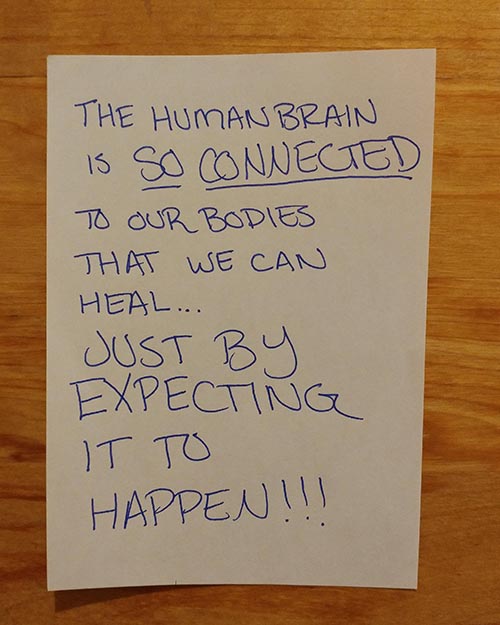 THE HUMAN BRAIN
IS SO CONNECTED
TO OUR BODIES
THAT WE CAN
HEAL...
JUST BY
EXPECTING
IT TO
HAPPEN!!!